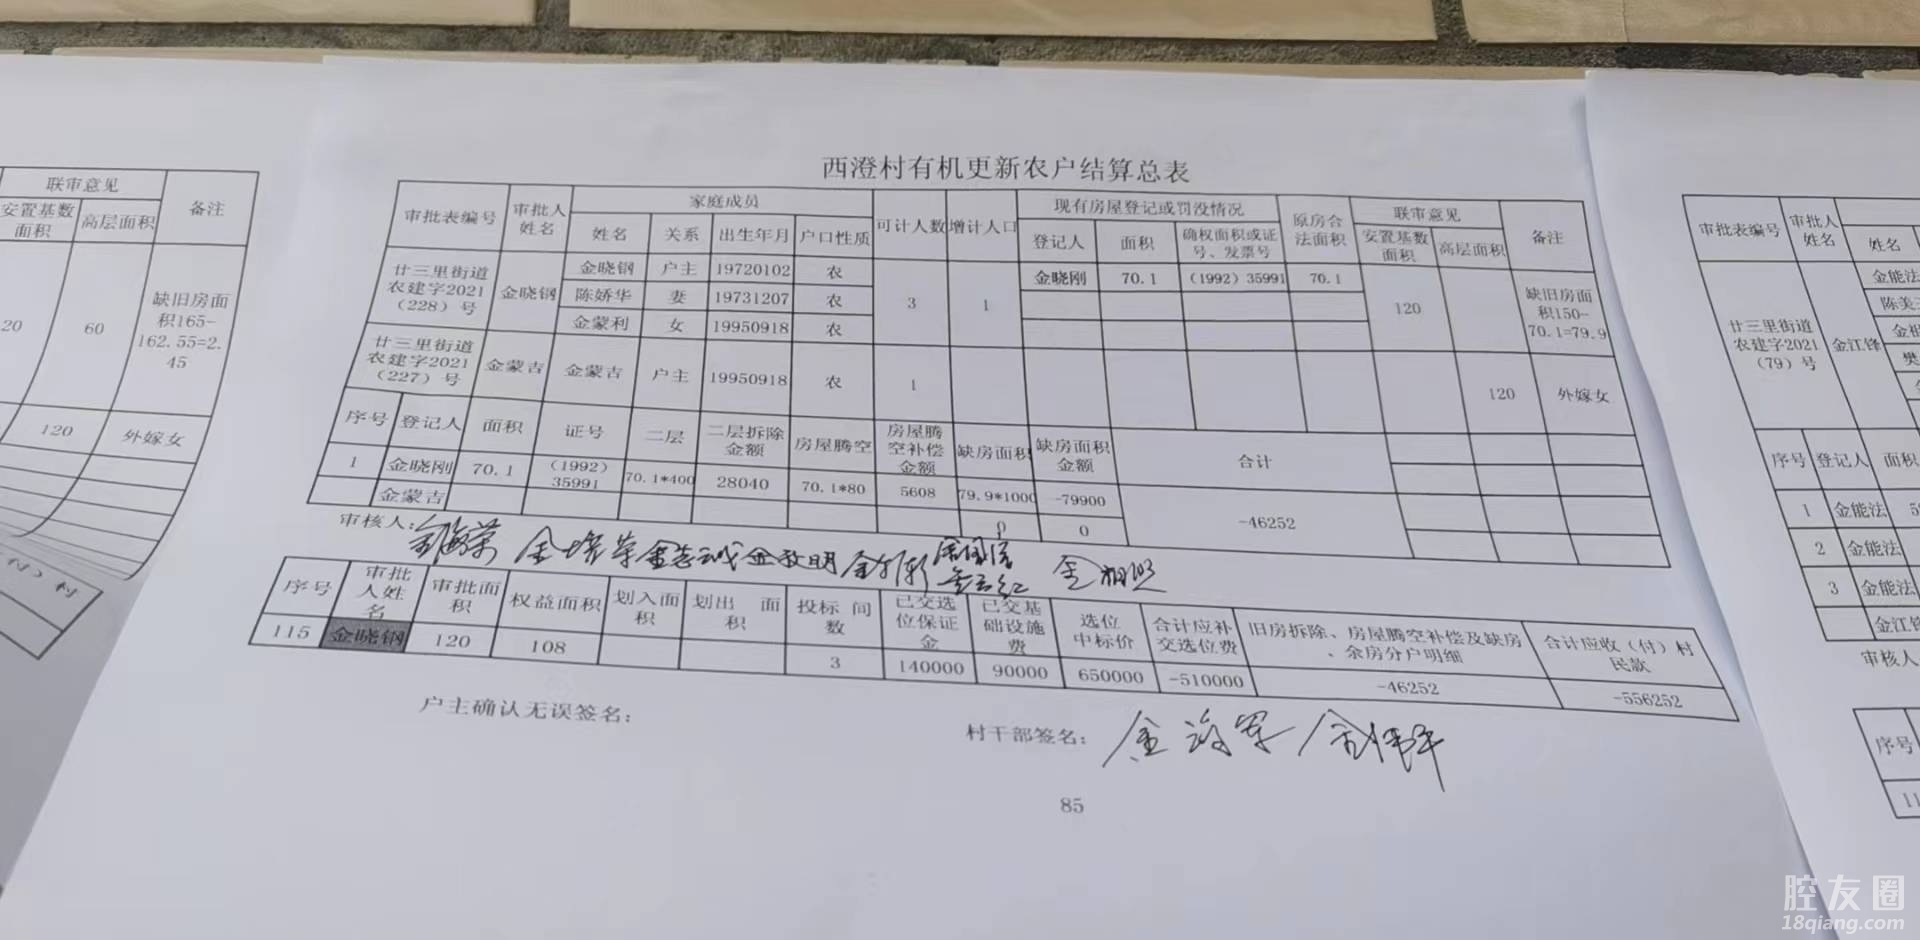 西澄村有机更新农户结算总表
审批表编号 审批人姓名 家庭成员 可计人数 增计人口 现有房屋登记或罚没情况 原房合法面积 联审意见 备注
姓名 关系 出生年月 户口性质 登记人 面积 确权面积或证号、发票号 安置基数面积 高层面积
廿三里街道农建字2021(228)号 金晓钢 金晓钢 户主 19720102 农 3 1 金晓刚 70.1 (1992)35991 70.1 120 缺旧房面积150-70.1=79.9
陈娇华 妻 19731207 农
金蒙利 女 19950918 农
廿三里街道农建字2021(227)号 金蒙吉 金蒙吉 户主 19950918 农 1 120 外嫁女
序号 登记人 面积 证号 二层 二层拆除金额 房屋腾空 房屋腾空补偿金额 缺房面积 缺房面积金额 合计
1 金晓刚 70.1 (1992)35991 70.1*400 28040 70.1*80 5608 79.9*1000 -79900 -46252
金蒙吉 0 0
审核人:
序号 审批人姓名 审批面积 权益面积 划入面积 划出 面积 投标 间数 已交选位保证金 已交基础设施费 选位中标价 合计应补交选位费 旧房拆除、房屋腾空补偿及缺房、余房分户明细 合计应收(付)村民款
115 金晓钢 120 108 3 140000 90000 650000 -510000 -46252 -556252
户主确认无误签名:
村干部签名:
85
联审意见 备注
安置基数面积 高层面积
20 60 缺旧房面积165-162.55=2.45
120 外嫁女
付)村
审批表编号 审批人姓名 姓名
廿三里街道农建字2021(79)号 金江锋 金能法
陈美
序号 登记人 面积
1 金能法
2 金能法
3 金能法
金江锋
审核人
序号
11
腔友圈
18qiang.com